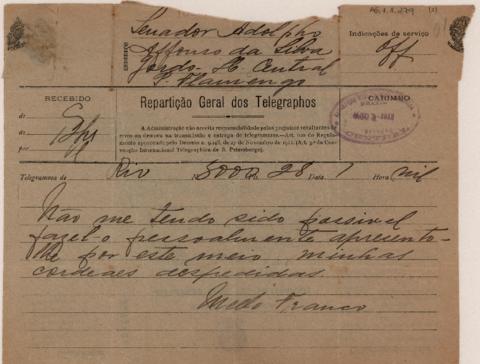 AG.1.1.279 (2)
Senador Adolpho
Affonso da Silva
Gordo - H. Central
P. Flamengo
ENDEREÇO
Indicações de serviço
Off
RECEBIDO
de
por
Repartição Geral dos Telegraphos
CARIMBO
A Administração não aceita responsabilidade pelos prejuizos resultantes de
erro ou demora na transmissão e entrega de telegrammas.—Art. do Regula-
mento approvado pelo Decreto n. de 27 de Novembro de 1911 (Art. 3º da Con-
venção Internacional Telegraphica de S. Petersburgo).
Telegramma de Rio N. 8000 Ps. 28 Data 1 Hora
Não me tendo sido possivel
fazel-o pessoalmente apresento-
lhe por este meio minhas
cordeaes despedidas
Mello Franco